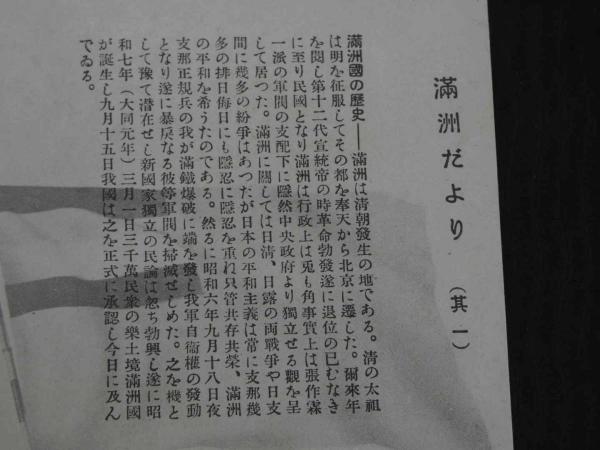 滿洲だより（其一）
滿洲國の歷史――滿洲は淸朝發生の地である。淸の太祖
は明を征服してその都を奉天から北京に遷した。爾來年
を閲し第十二代宣統帝の時革命勃發遂に退位の已むなき
に至り民國となり滿洲は行政上は兎も角事實上は張作霖
一派の軍閥の支配下に隱然中央政府より獨立せる觀を呈
して居つた。滿洲に關しては日淸、日露の兩戰爭や日支
間に幾多の紛爭はあつたが日本の平和主義は常に支那幾
多の排日侮日にも隱忍に隱忍を重ね只管共存共榮、滿洲
の平和を希うたのである。然るに昭和六年九月十八日夜
支那正規兵の我が滿鐵爆破に端を發し我軍自衞權の發動
となり遂に暴戾なる彼等軍閥を掃滅せしめた。之を機と
して豫て潜在せし新國家獨立の民論は忽ち勃興し遂に昭
和七年（大同元年）三月一日三千萬民衆の樂土境滿洲國
が誕生し九月十五日我國は之を正式に承認し今日に及ん
でゐる。